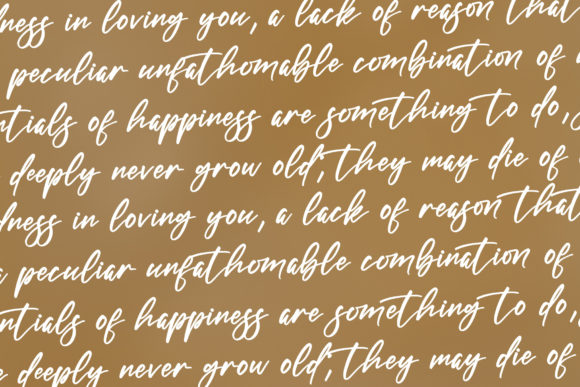 dness in loving you, a lack of reason that
peculiar unfathomable combination of
ntials of happiness are something to do,
deeply never grow old; they may die of
dness in loving you, a lack of reason that
a peculiar unfathomable combination of
ntials of happiness are something to do,
e deeply never grow old; they may die of